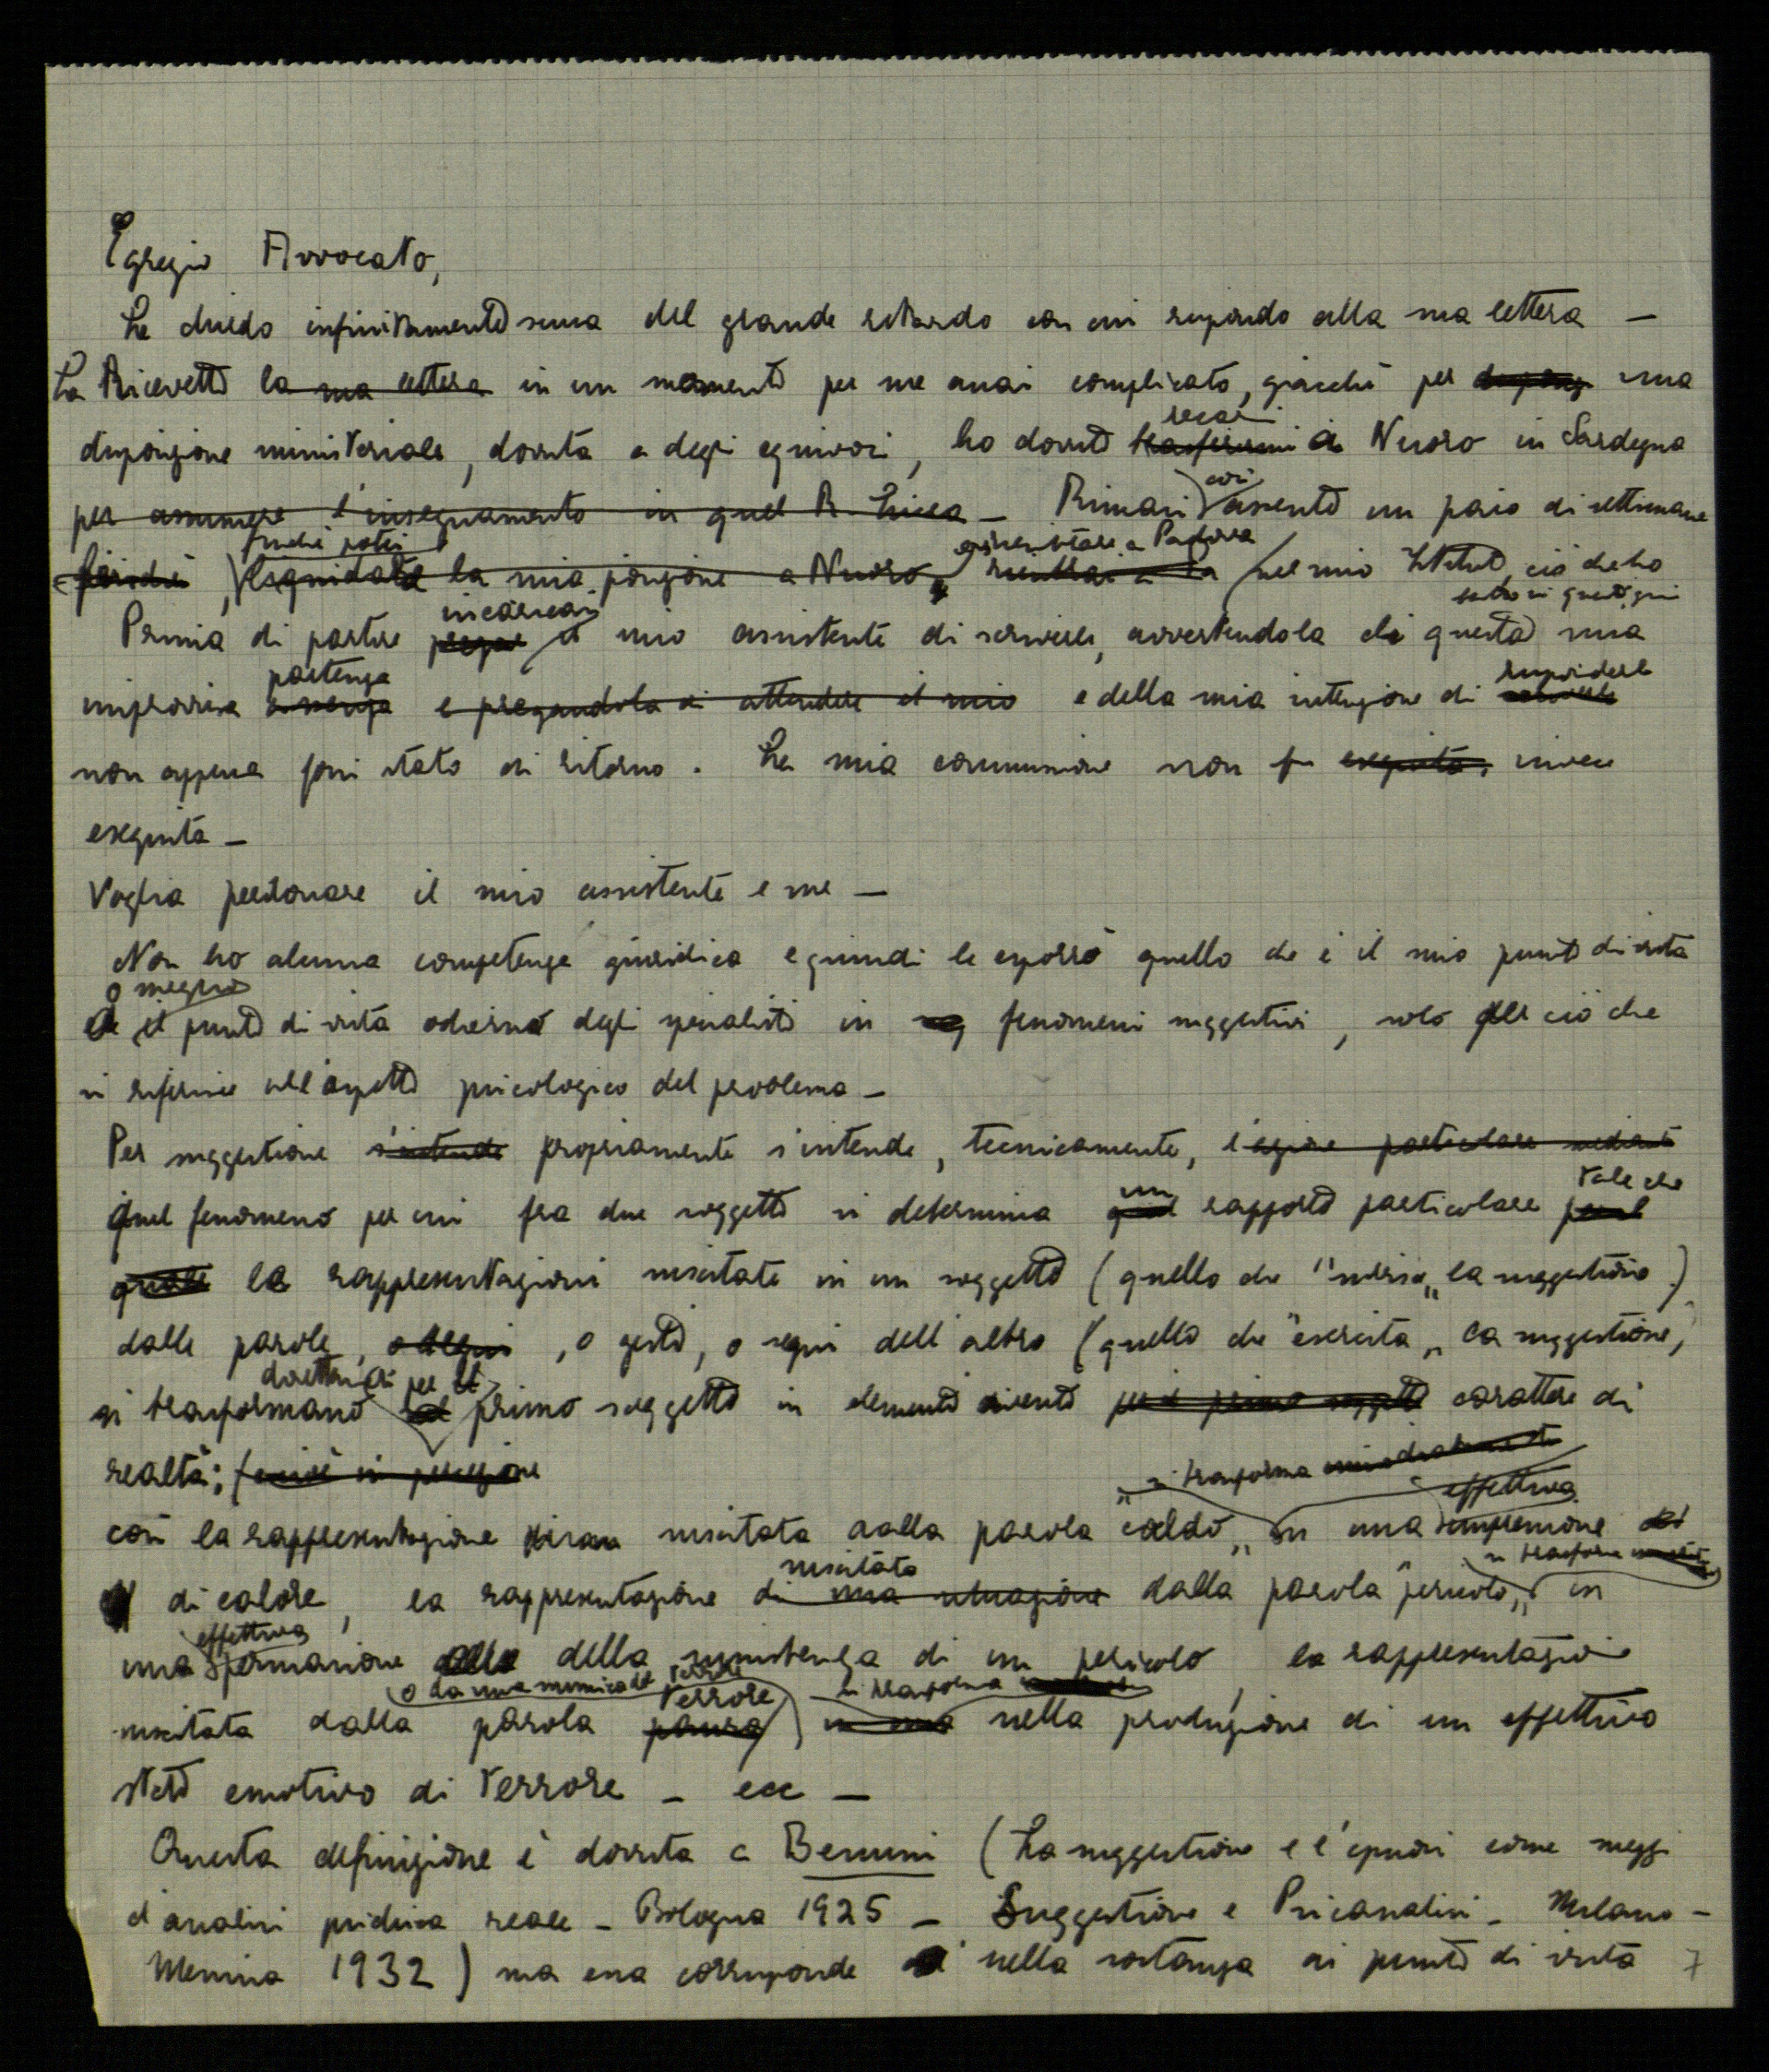 Egregio Avvocato,
Le chiedo infinitamente scusa del grande ritardo con cui rispondo alla sua lettera —
La Ricevetti la sua lettera in un momento per me assai complicato, giacché per una
recarmi
disposizione ministeriale, dovuta a degli equivoci, ho dovuto trasferirmi a Nuoro in Sardegna
così
per assumere l'insegnamento in quel R. Liceo — Rimasi assente un paio di settimane
finché potei rientrare a Padova
finché, liquidata la mia posizione a Nuoro, nel mio Istituto, ciò che ho
fatto in questi giorni
incaricai
Prima di partire pregai il mio assistente di scriverle, avvertendola di questa mia
partenza rispondere
improvvisa assenza e pregandola di attendere il mio e della mia intenzione di
non appena fossi stato di ritorno. La mia commissione non fu eseguita, invece
eseguita —
Voglia perdonare il mio assistente e me —
Non ho alcuna competenza giuridica e quindi le esporrò quello che è il mio punto di vista
o meglio
il punto di vista odierno degli specialisti in fenomeni suggestivi, solo per ciò che
si riferisce all'aspetto psicologico del problema —
Per suggestione s'intende propriamente s'intende, tecnicamente, l'azione particolare mediante
un tale che
quel fenomeno per cui fra due soggetti si determina quel rapporto particolare per il
quale le rappresentazioni suscitate in un soggetto (quello che "subisce" la suggestione)
dalle parole, o segni, o gesti, o segni dell'altro (quello che "esercita" la suggestione)
per il
si trasformano primo soggetto in elementi aventi per il primo soggetto carattere di
realtà; (cioè in percezione
si trasforma
effettiva
così la rappresentazione suscitata dalla parola "caldo" in una impressione
suscitata si trasforma
di calore, la rappresentazione di una situazione dalla parola "pericolo" in
effettiva
una persuasione della sussistenza di un pericolo, la rappresentazione
o da una mimica di terrore terrore si trasforma
suscitata dalla parola paura in una nella produzione di un effettivo
stato emotivo di terrore — ecc —
Questa definizione è dovuta a Benussi (La suggestione e l'ipnosi come mezzi
d'analisi psichica reale — Bologna 1925 — Suggestione e Psicanalisi — Milano —
Messina 1932) ma essa corrisponde nella sostanza ai punti di vista 7